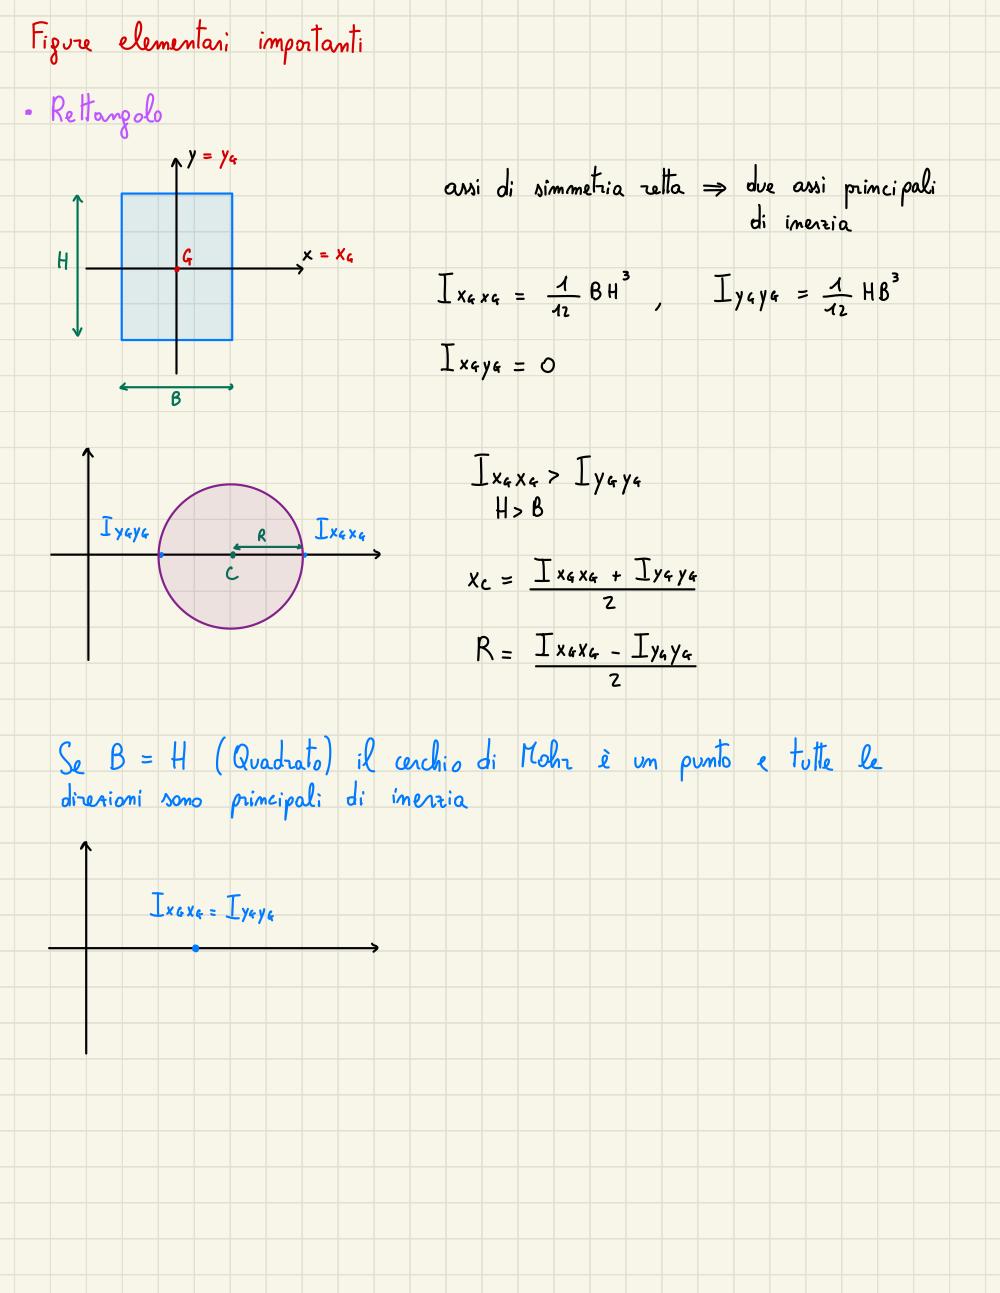 Figure elementari importanti
• Rettangolo
y = y_G
H
G
x = x_G
B
assi di simmetria retta ⇒ due assi principali
di inerzia
I_{x_G x_G} = 1/12 BH³ , I_{y_G y_G} = 1/12 HB³
I_{x_G y_G} = 0
I_{y_G y_G}
R
I_{x_G x_G}
C
I_{x_G x_G} > I_{y_G y_G}
H > B
x_C = (I_{x_G x_G} + I_{y_G y_G}) / 2
R = (I_{x_G x_G} - I_{y_G y_G}) / 2
Se B = H (Quadrato) il cerchio di Mohr è un punto e tutte le
direzioni sono principali di inerzia
I_{x_G x_G} = I_{y_G y_G}